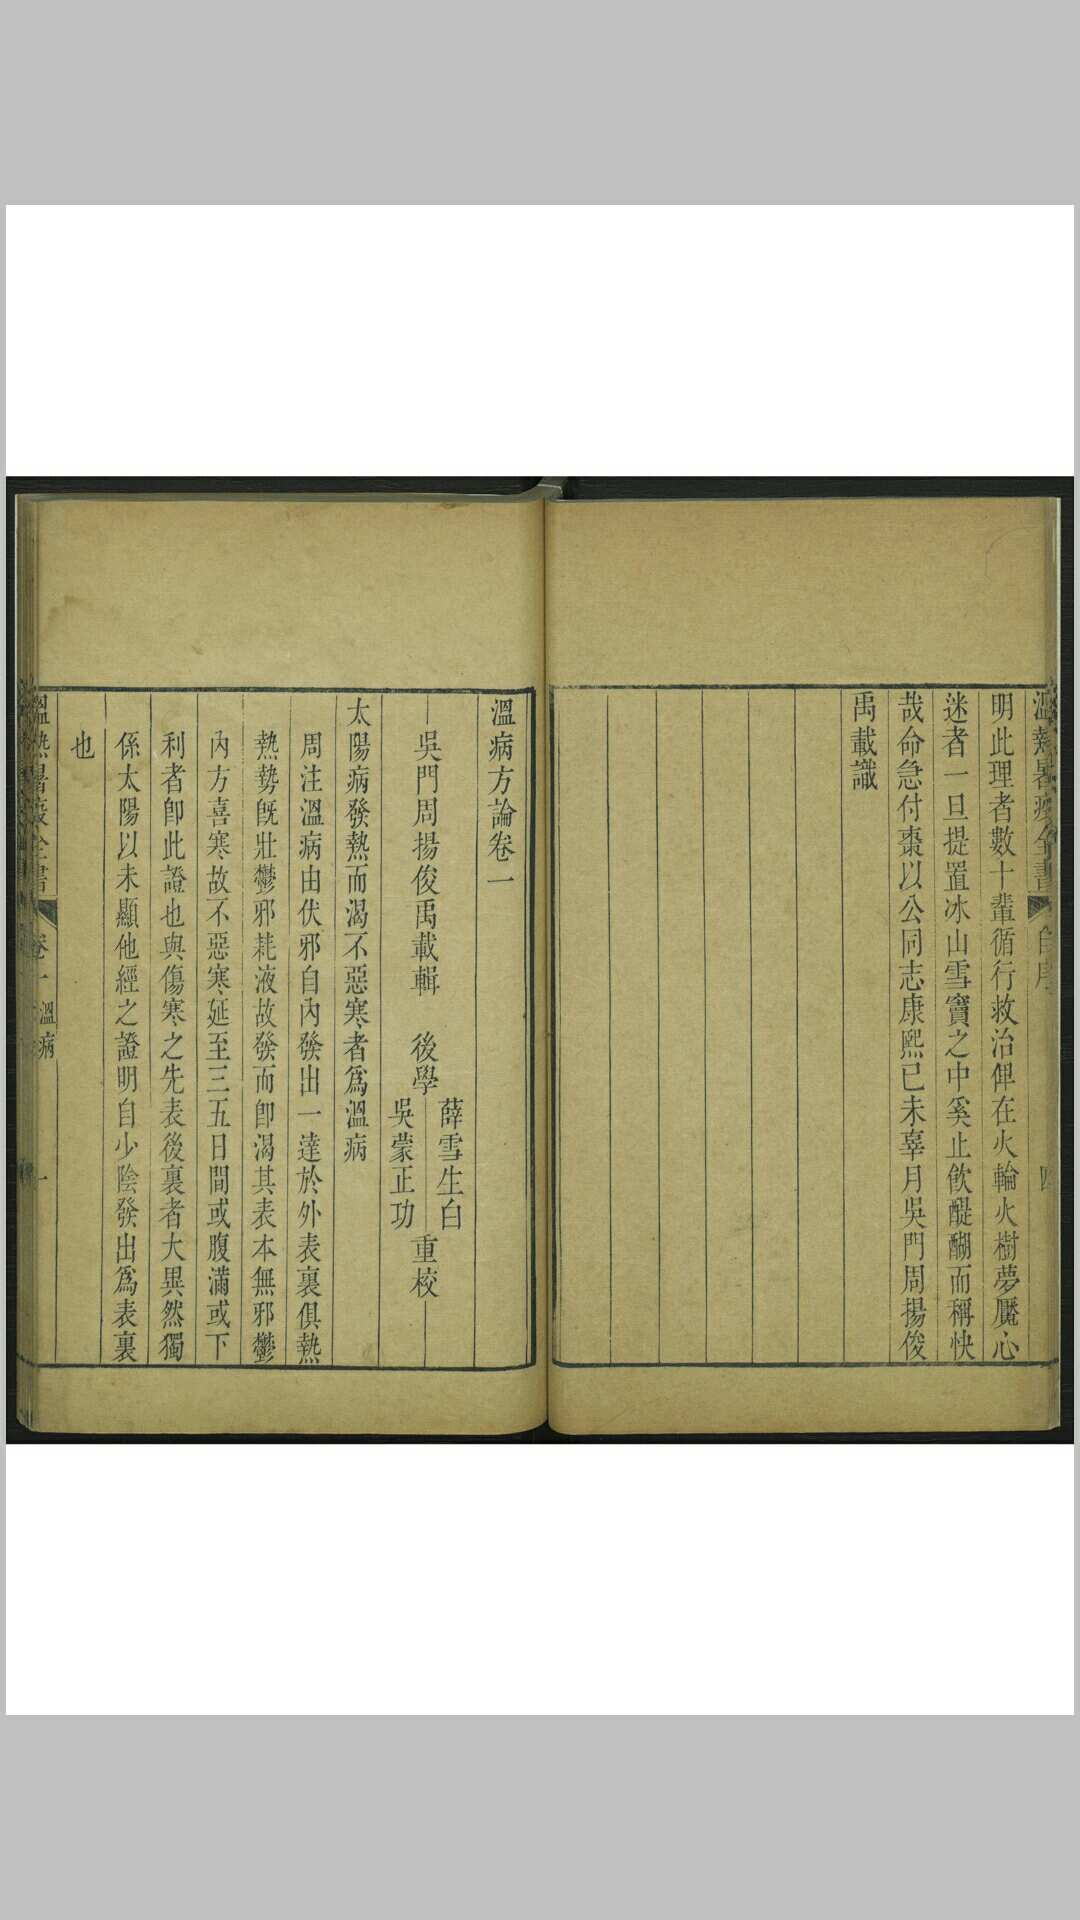 溫熱暑疫全書
自序
四
明此理者數十輩循行救治俾在火輪火樹夢魘心
迷者一旦提置冰山雪竇之中奚止飲醍醐而稱快
哉命急付棗以公同志康熙己未辜月吳門周揚俊
禹載識
溫病方論卷一
吳門周揚俊禹載輯 後學
薛雪生白
吳蒙正功
重校
太陽病發熱而渴不惡寒者爲溫病
周注溫病由伏邪自內發出一達於外表裏俱熱
熱勢旣壯鬱邪耗液故發而卽渴其表本無邪鬱
內方喜寒故不惡寒延至三五日間或腹滿或下
利者卽此證也與傷寒之先表後裏者大異然獨
係太陽以未顯他經之證明自少陰發出爲表裏
也
溫熱暑疫全書
卷一
溫病
一